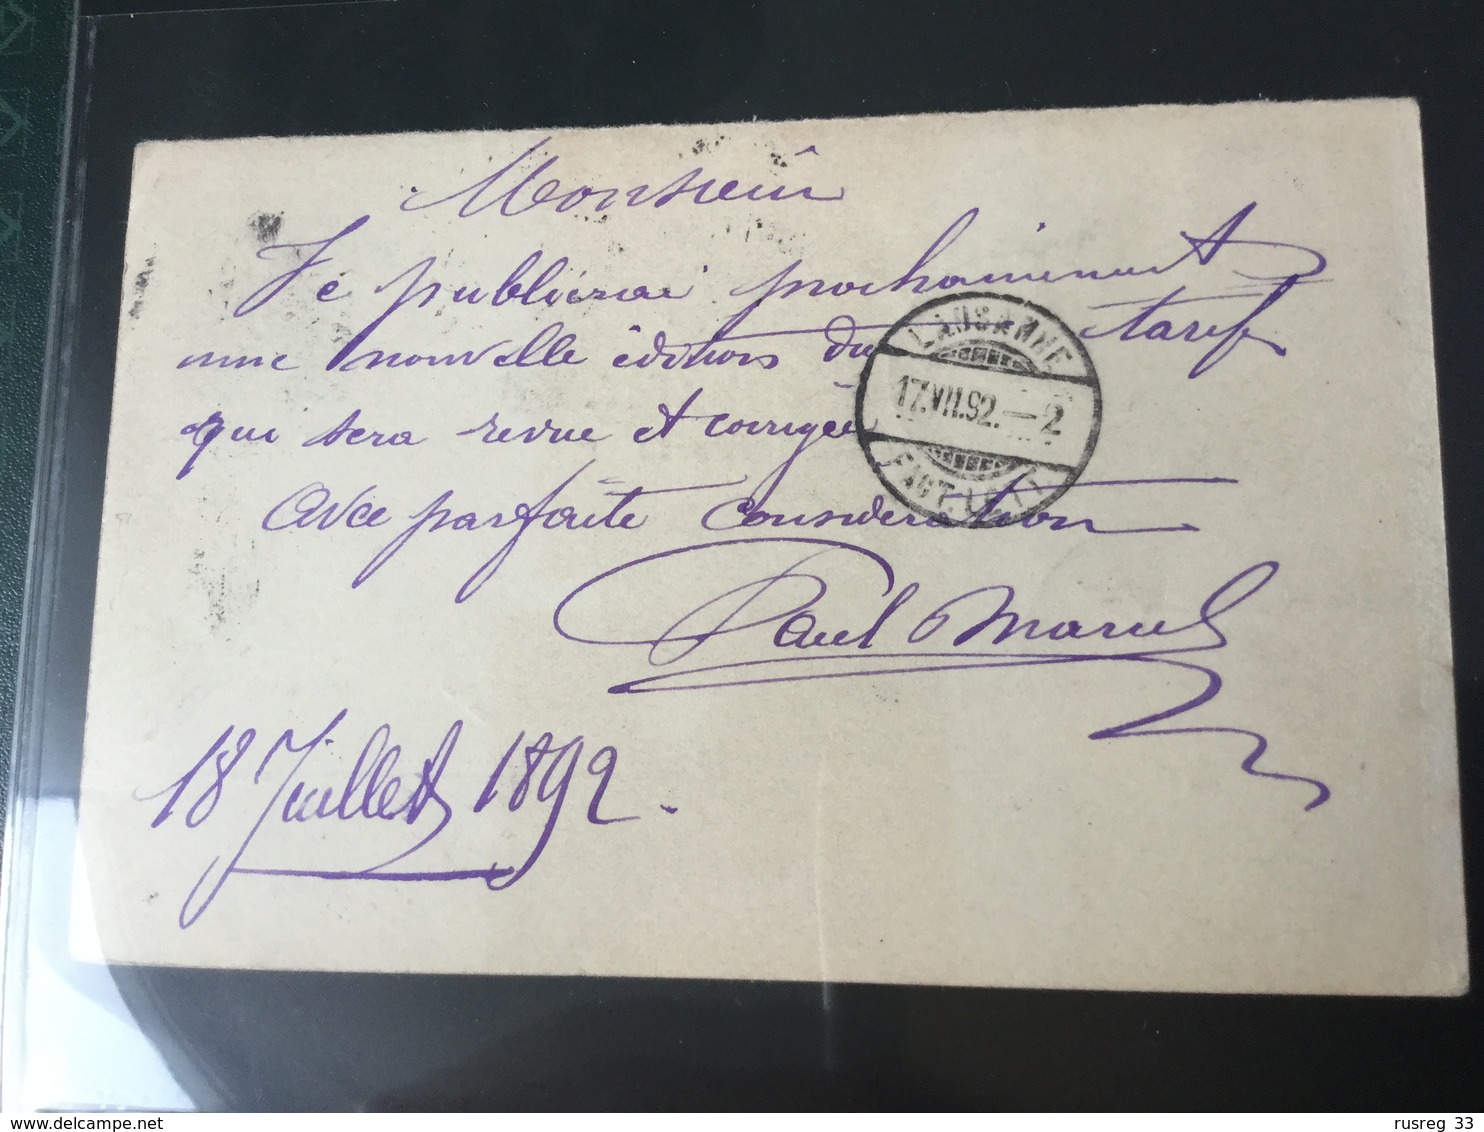 Monsieur
Je publierai prochainement
une nouvelle édition du tarif
qui sera revue et corrigée
Avec parfaite considération
Paul
18 Juillet 1892.
LAUSANNE
17.VII.92.—2
FACT. LETT.
rusreg 33